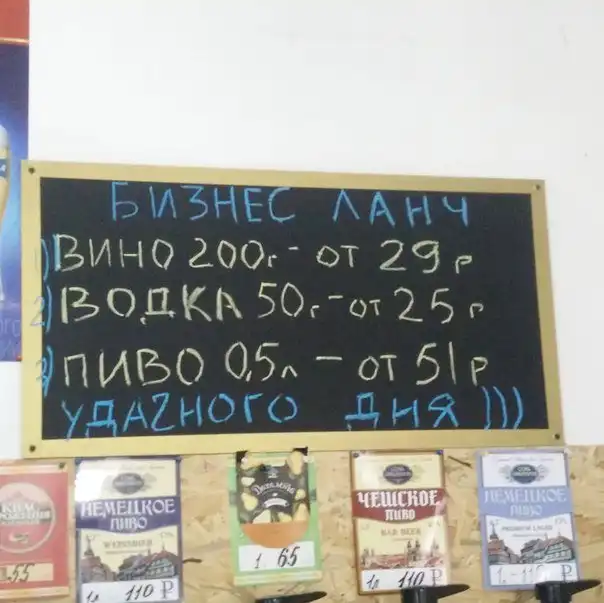 БИЗНЕС ЛАНЧ
1) ВИНО 200г - ОТ 29 р
2) ВОДКА 50г - ОТ 25 р
3) ПИВО 0,5л - ОТ 51 р
УДАЧНОГО ДНЯ )))
НЕМЕЦКОЕ
ПИВО
WEISSBIER
1л 110 ₽
1 65
ЧЕШСКОЕ
ПИВО
BAR BEER
1л 110 ₽
НЕМЕЦКОЕ
ПИВО
PREMIUM LAGER
1 - 110 ₽
55